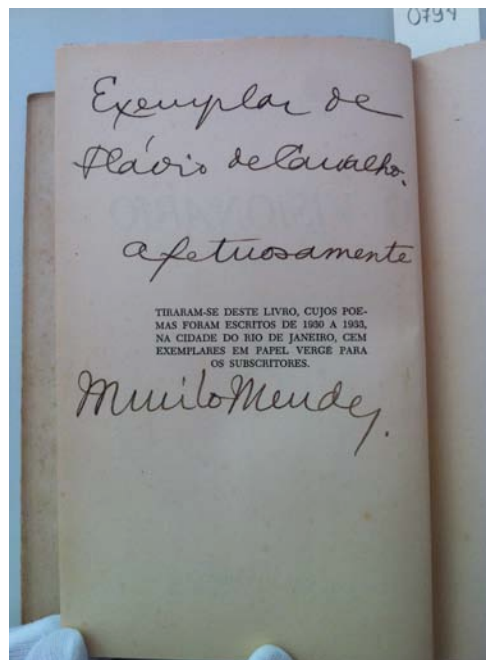 0794
Exemplar de
Flávio de Carvalho.
afetuosamente
TIRARAM-SE DESTE LIVRO, CUJOS POE-
MAS FORAM ESCRITOS DE 1930 A 1933,
NA CIDADE DO RIO DE JANEIRO, CEM
EXEMPLARES EM PAPEL VERGÉ PARA
OS SUBSCRITORES.
Murilo Mendes.